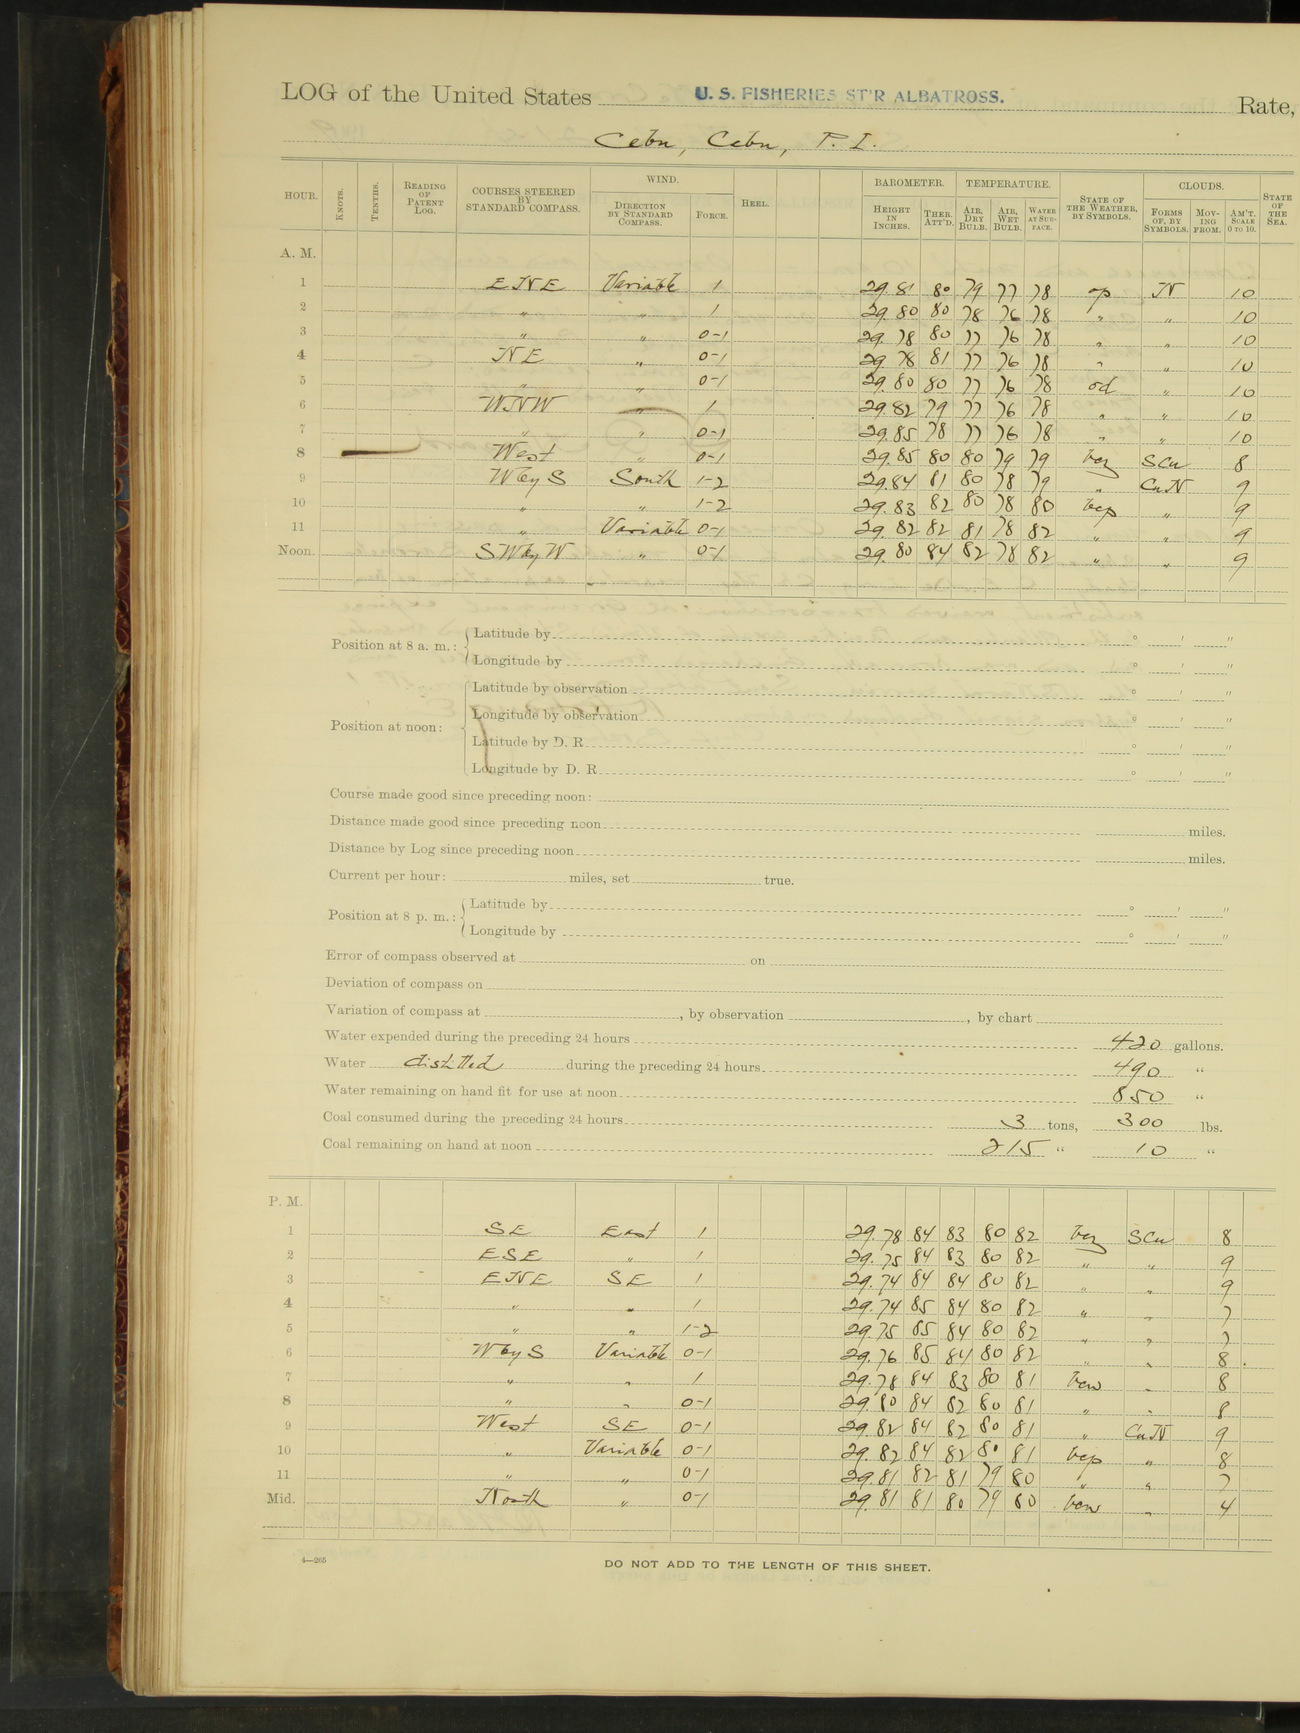 LOG of the United States U. S. FISHERIES ST'R ALBATROSS. Rate,
Cebu, Cebu, P. I.
HOUR. KNOTS. TENTHS. READING OF PATENT LOG. COURSES STEERED BY STANDARD COMPASS. WIND. DIRECTION BY STANDARD COMPASS. FORCE. HEEL. BAROMETER. HEIGHT IN INCHES. THER. ATT'D. TEMPERATURE. AIR, DRY BULB. AIR, WET BULB. WATER AT SURFACE. STATE OF THE WEATHER, BY SYMBOLS. CLOUDS. FORMS OF, BY SYMBOLS. MOVING FROM. AM'T. SCALE 0 TO 10. STATE OF THE SEA.
A. M.
1 ENE Variable 1 29.81 80 79 77 78 op N 10
2 " " 1 29.80 80 78 76 78 " " 10
3 " " 0-1 29.78 80 77 76 78 " " 10
4 NE " 0-1 29.78 81 77 76 78 " " 10
5 " " 0-1 29.80 80 77 76 78 od " 10
6 WNW " 1 29.82 79 77 76 78 " " 10
7 " " 0-1 29.85 78 77 76 78 " " 10
8 West " 0-1 29.85 80 80 79 79 bcz SCu 8
9 WbyS South 1-2 29.84 81 80 78 79 " CuN 9
10 " " 1-2 29.83 82 80 78 80 bcp " 9
11 " Variable 0-1 29.82 82 81 78 82 " " 9
Noon. SWbyW " 0-1 29.80 84 82 78 82 " " 9
Position at 8 a. m.: Latitude by ° ' "
Longitude by ° ' "
Position at noon: Latitude by observation ° ' "
Longitude by observation ° ' "
Latitude by D. R. ° ' "
Longitude by D. R. ° ' "
Course made good since preceding noon:
Distance made good since preceding noon miles.
Distance by Log since preceding noon miles.
Current per hour: miles, set true.
Position at 8 p. m.: Latitude by ° ' "
Longitude by ° ' "
Error of compass observed at on
Deviation of compass on
Variation of compass at , by observation , by chart
Water expended during the preceding 24 hours 420 gallons.
Water distilled during the preceding 24 hours 490 "
Water remaining on hand fit for use at noon 850 "
Coal consumed during the preceding 24 hours 3 tons, 300 lbs.
Coal remaining on hand at noon 215 " 10 "
P. M.
1 SE East 1 29.78 84 83 80 82 bcz SCu 8
2 ESE " 1 29.75 84 83 80 82 " " 9
3 ENE SE 1 29.74 84 84 80 82 " " 9
4 " " 1 29.74 85 84 80 82 " " 7
5 " " 1-2 29.75 85 84 80 82 " " 7
6 WbyS Variable 0-1 29.76 85 84 80 82 " " 8
7 " " 1 29.78 84 83 80 81 bcw " 8
8 " " 0-1 29.80 84 82 80 81 " " 8
9 West SE 0-1 29.82 84 82 80 81 " CuN 9
10 " Variable 0-1 29.82 84 82 80 81 bcp " 8
11 " " 0-1 29.81 82 81 79 80 " " 7
Mid. North " 0-1 29.81 81 80 79 80 bcw " 4
4—265
DO NOT ADD TO THE LENGTH OF THIS SHEET.